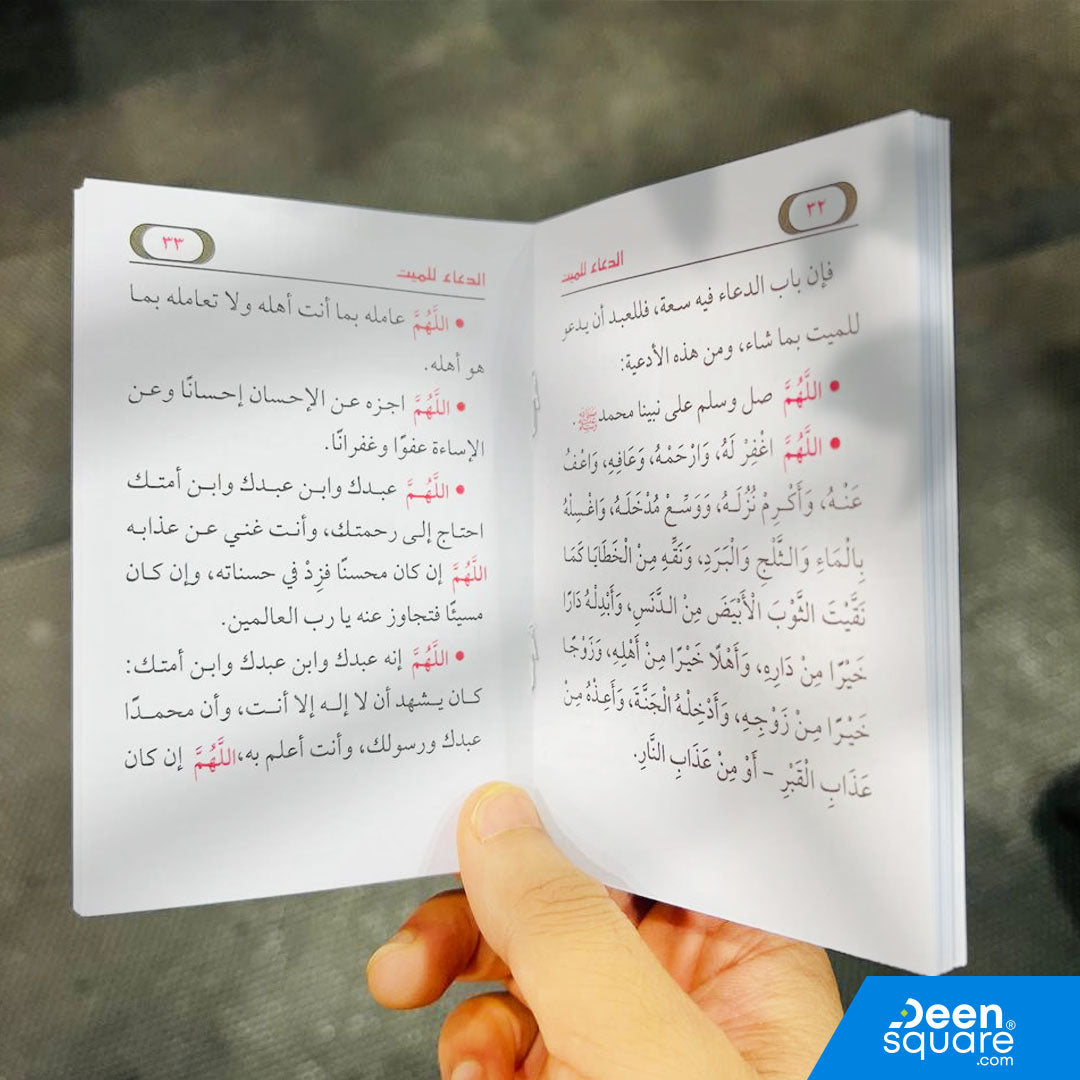 ٣٢
الدعاء للميت
فإن باب الدعاء فيه سعة، فللعبد أن يدعو
للميت بما شاء، ومن هذه الأدعية:
• اللَّهُمَّ صل وسلم على نبينا محمد ﷺ.
• اللَّهُمَّ اغْفِرْ لَهُ، وَارْحَمْهُ، وَعَافِهِ، وَاعْفُ
عَنْهُ، وَأَكْرِمْ نُزُلَهُ، وَوَسِّعْ مُدْخَلَهُ، وَاغْسِلْهُ
بِالْمَاءِ وَالثَّلْجِ وَالْبَرَدِ، وَنَقِّهِ مِنْ الْخَطَايَا كَمَا
نَقَّيْتَ الثَّوْبَ الْأَبْيَضَ مِنْ الدَّنَسِ، وَأَبْدِلْهُ دَارًا
خَيْرًا مِنْ دَارِهِ، وَأَهْلًا خَيْرًا مِنْ أَهْلِهِ، وَزَوْجًا
خَيْرًا مِنْ زَوْجِهِ، وَأَدْخِلْهُ الْجَنَّةَ، وَأَعِذْهُ مِنْ
عَذَابِ الْقَبْرِ - أَوْ مِنْ عَذَابِ النَّارِ.
٣٣
الدعاء للميت
• اللَّهُمَّ عامله بما أنت أهله ولا تعامله بما
هو أهله.
• اللَّهُمَّ اجزه عن الإحسان إحسانًا وعن
الإساءة عفوًا وغفرانًا.
• اللَّهُمَّ عبدك وابن عبدك وابن أمتك
احتاج إلى رحمتك، وأنت غني عن عذابه
اللَّهُمَّ إن كان محسنًا فزِدْ في حسناته، وإن كان
مسيئًا فتجاوز عنه يا رب العالمين.
• اللَّهُمَّ إنه عبدك وابن عبدك وابن أمتك:
كان يشهد أن لا إله إلا أنت، وأن محمدًا
عبدك ورسولك، وأنت أعلم به، اللَّهُمَّ إن كان
Deen
square®
.com